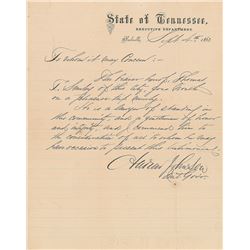 State of Tennessee,
EXECUTIVE DEPARTMENT,
Nashville, Sept 4th 1862
To whom it may Concern:
The bearer hereof, Thomas
T. Smiley of this City, goes North
on a pleasure trip merely.
He is a lawyer of standing in
this community and a gentleman of honor
and integrity, and I commend him to
the consideration of all to whom he may
have occasion to present this
Andrew Johnson
Govr.